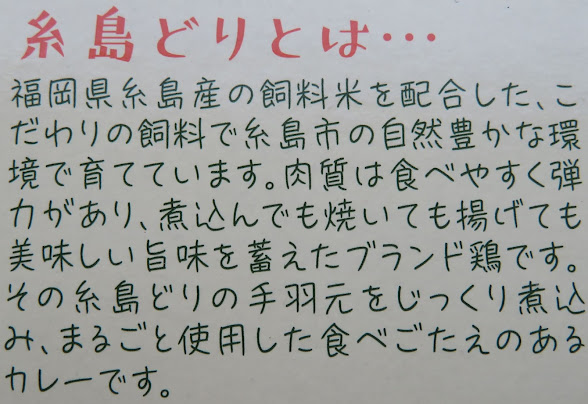 糸島どりとは…
福岡県糸島産の飼料米を配合した、こ
だわりの飼料で糸島市の自然豊かな環
境で育てています。肉質は食べやすく弾
力があり、煮込んでも焼いても揚げても
美味しい旨味を蓄えたブランド鶏です。
その糸島どりの手羽元をじっくり煮込
み、まるごと使用した食べごたえのある
カレーです。